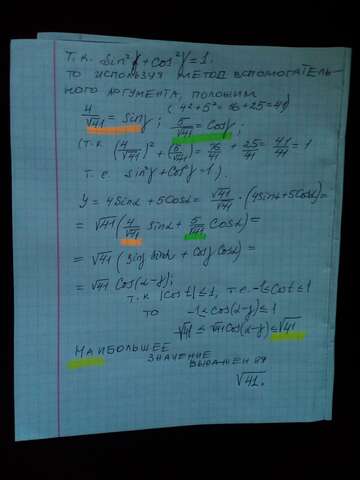 Т.к. sin²γ + cos²γ = 1.
то используя метод вспомогатель-
ного аргумента, положим
(4²+5²=16+25=41)
4/√41 = sinγ; 5/√41 = cosγ;
(т.к. (4/√41)² + (5/√41)² = 16/41 + 25/41 = 41/41 = 1
т.е. sin²γ + cos²γ = 1).
y = 4sinα + 5cosα = √41/√41 · (4sinα + 5cosα) =
= √41 (4/√41 sinα + 5/√41 cosα) =
= √41 (sinγ sinα + cosγ cosα) =
= √41 cos(α-γ);
т.к |cost| ≤ 1, т.е. -1 ≤ cost ≤ 1
то -1 ≤ cos(α-γ) ≤ 1
-√41 ≤ √41 cos(α-γ) ≤ √41
Наибольшее
значение
выражения
√41.